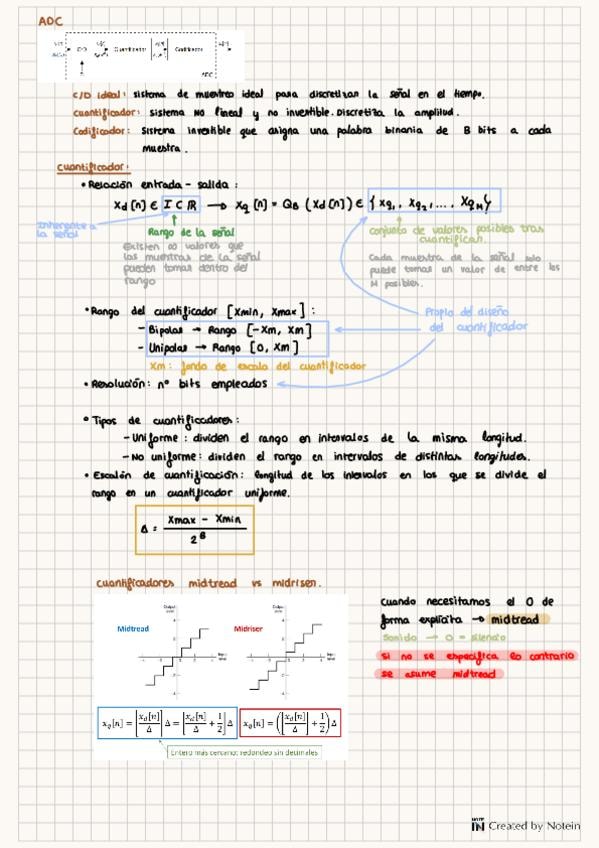 ADC
C/D
Cuantificador
Codificador
ADC
C/D ideal: sistema de muestreo ideal para discretizar la señal en el tiempo.
Cuantificador: sistema NO lineal y no invertible. Discretiza la amplitud.
Codificador: Sistema invertible que asigna una palabra binaria de B bits a cada
muestra.
Cuantificador:
• Relación entrada - salida:
Xd[n] ∈ I ⊂ ℝ → Xq[n] = QB (Xd[n]) ∈ { Xq1, Xq2, ... XqM}
Inherente a
la señal
Rango de la señal
Existen ∞ valores que
las muestras de la señal
pueden tomar dentro del
rango
Conjunto de valores posibles tras
cuantificar.
Cada muestra de la señal solo
puede tomar un valor de entre los
M posibles.
• Rango del cuantificador [Xmin, Xmax]:
- Bipolar → Rango [-Xm, Xm]
- Unipolar → Rango [0, Xm]
Xm: fondo de escala del cuantificador
Propio del diseño
del cuantificador
• Resolución: nº bits empleados
• Tipos de cuantificadores:
- Uniforme: dividen el rango en intervalos de la misma longitud.
- No uniforme: dividen el rango en intervalos de distintas longitudes.
• Escalón de cuantificación: longitud de los intervalos en los que se divide el
rango en un cuantificador uniforme.
Δ = (Xmax - Xmin) / 2^B
Cuantificadores midtread vs midriser.
Midtread
Midriser
cuando necesitamos el 0 de
forma explícita → midtread
Sonido → 0 = silencio
si no se especifica lo contrario
se asume midtread
x_q[n] = ⌊x_d[n]/Δ⌉ Δ = ⌊x_d[n]/Δ + 1/2⌋ Δ
x_q[n] = (⌊x_d[n]/Δ⌋ + 1/2) Δ
Entero más cercano: redondeo sin decimales
NOTE IN Created by Notein